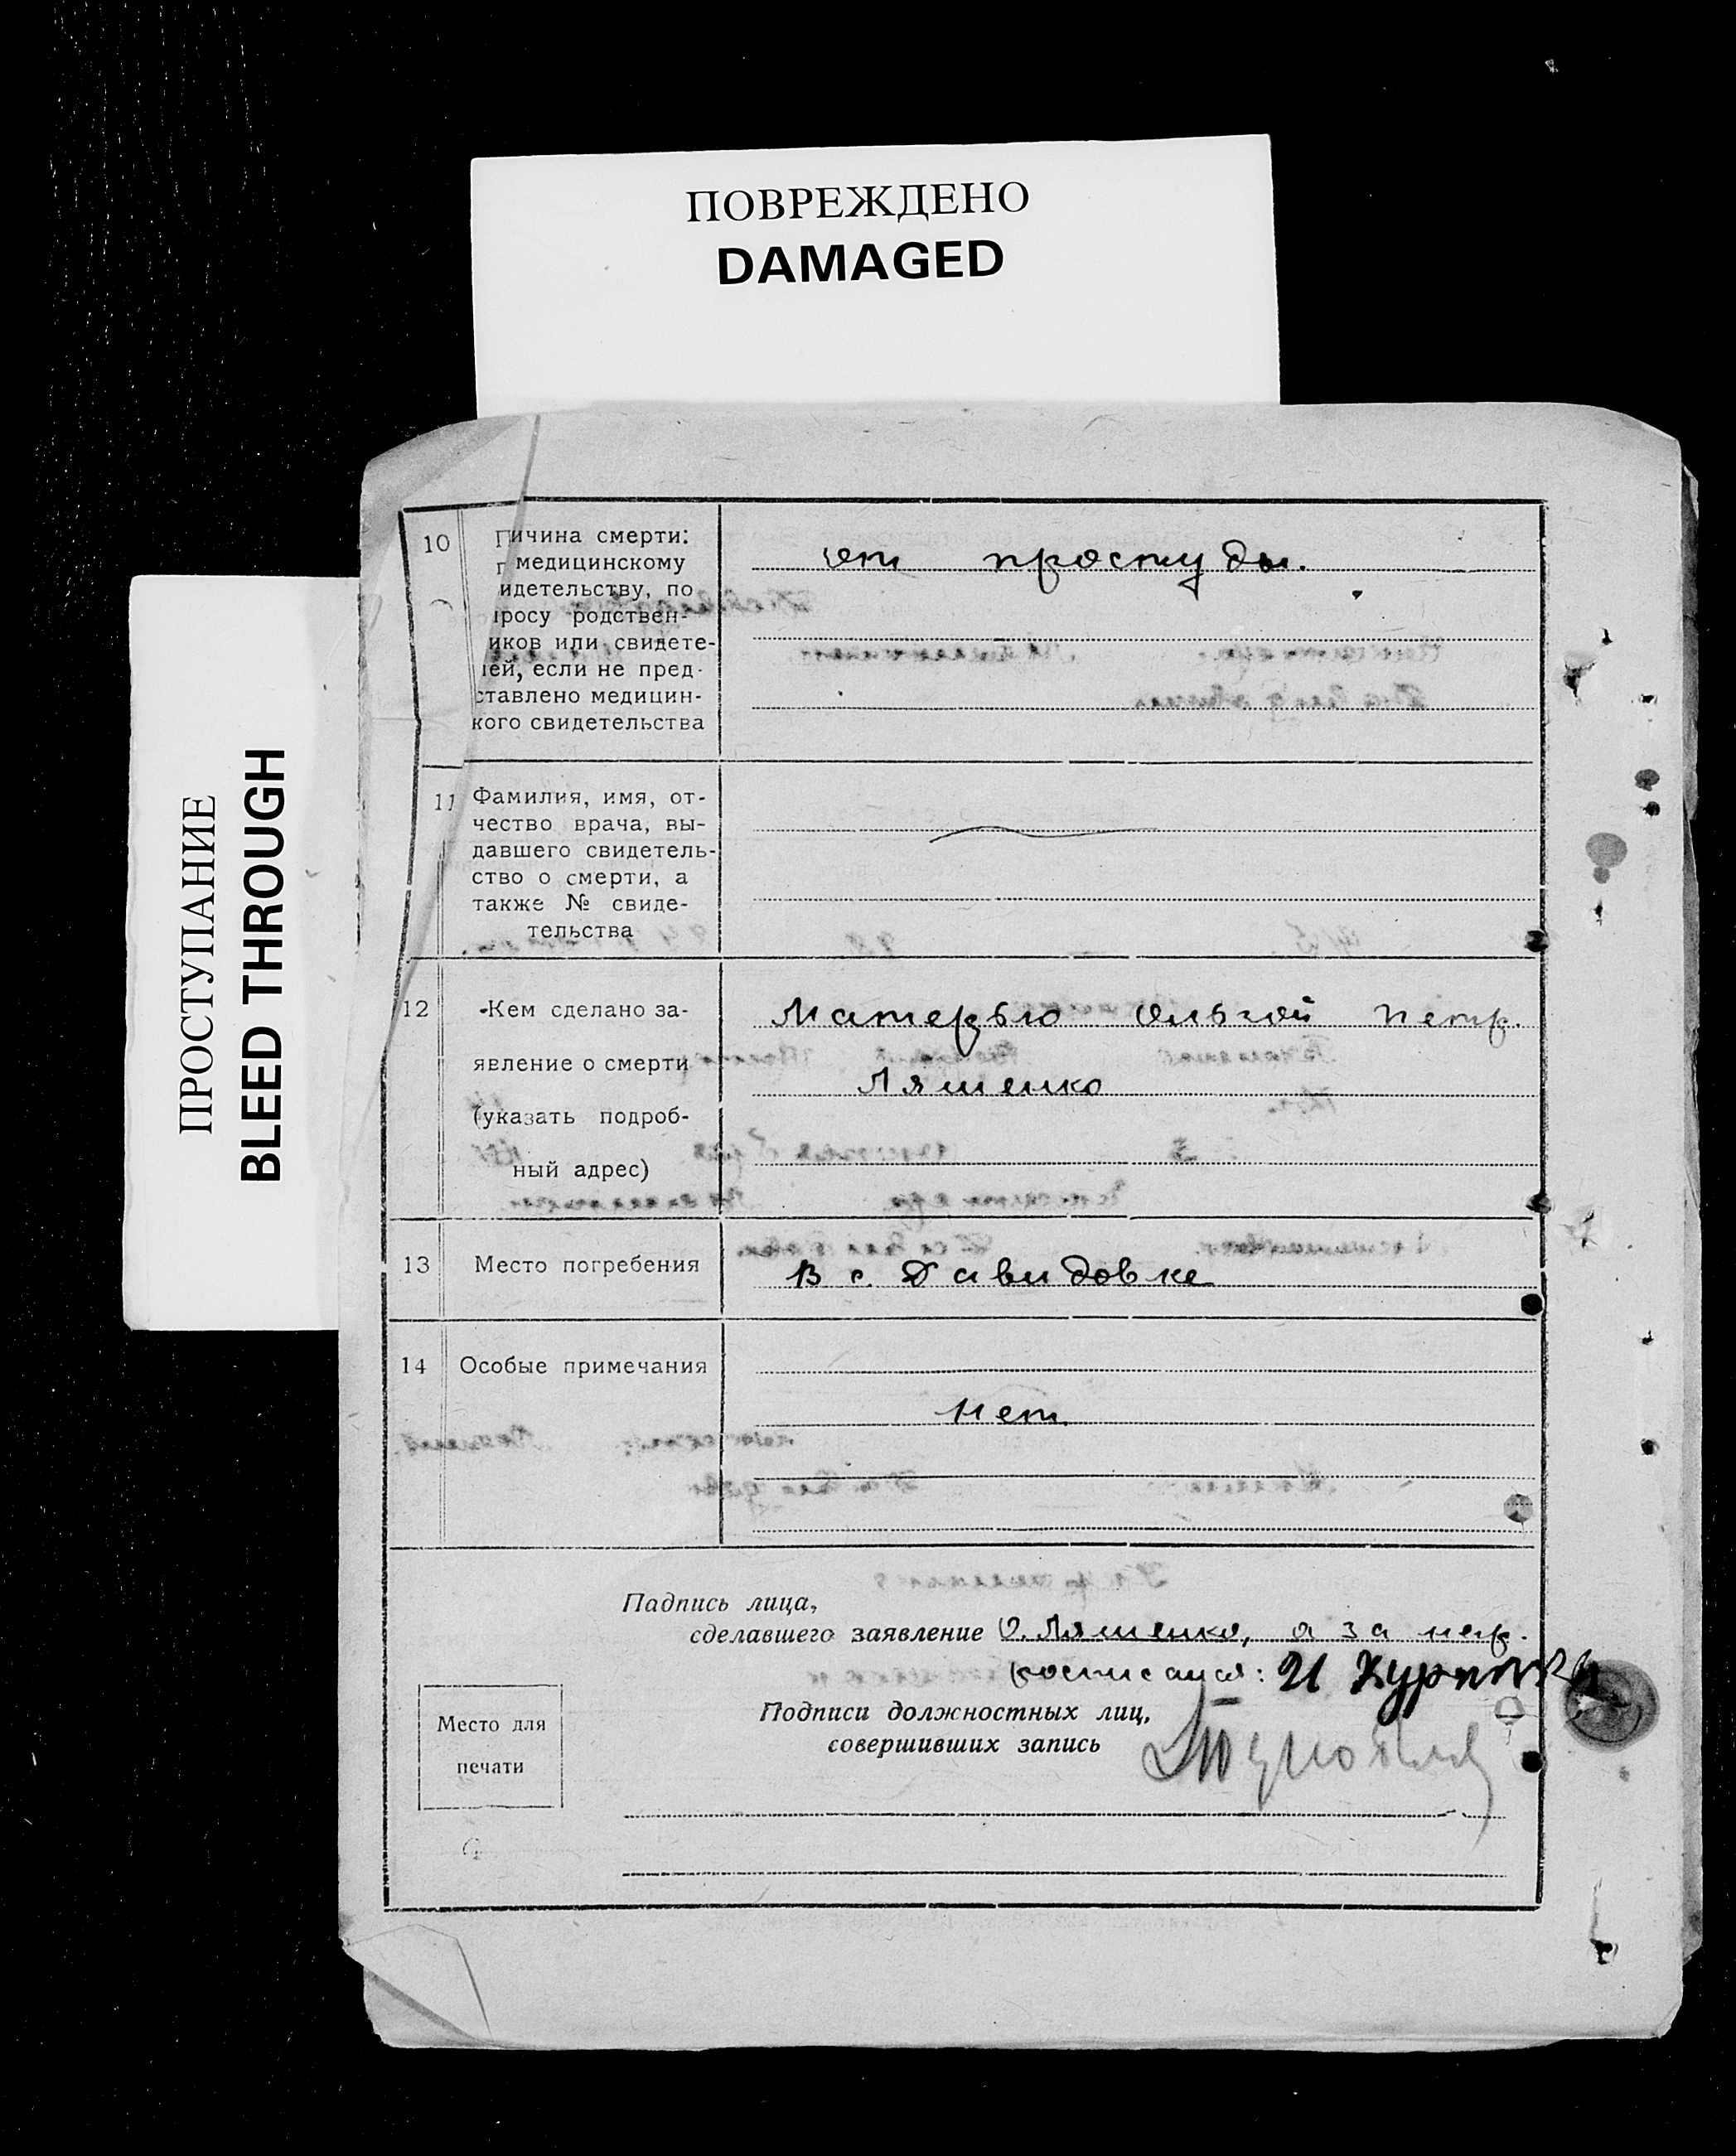 ПОВРЕЖДЕНО
DAMAGED
ПРОСТУПАНИЕ
BLEED THROUGH
10
ичина смерти:
медицинскому
идетельству, по
просу родствен-
иков или свидете-
лей, если не пред-
ставлено медицин-
кого свидетельства
от простуды.
11
Фамилия, имя, от-
чество врача, вы-
давшего свидетель-
ство о смерти, а
также № свиде-
тельства
12
Кем сделано за-
явление о смерти
(указать подроб-
ный адрес)
Матерью Ольгой Петр.
Ляшенко
13
Место погребения
В с. Давидовке
14
Особые примечания
нет
Падпись лица,
сделавшего заявление О. Ляшенко, а за нер.
росписался: И
Подписи должностных лиц,
совершивших запись
Место для
печати